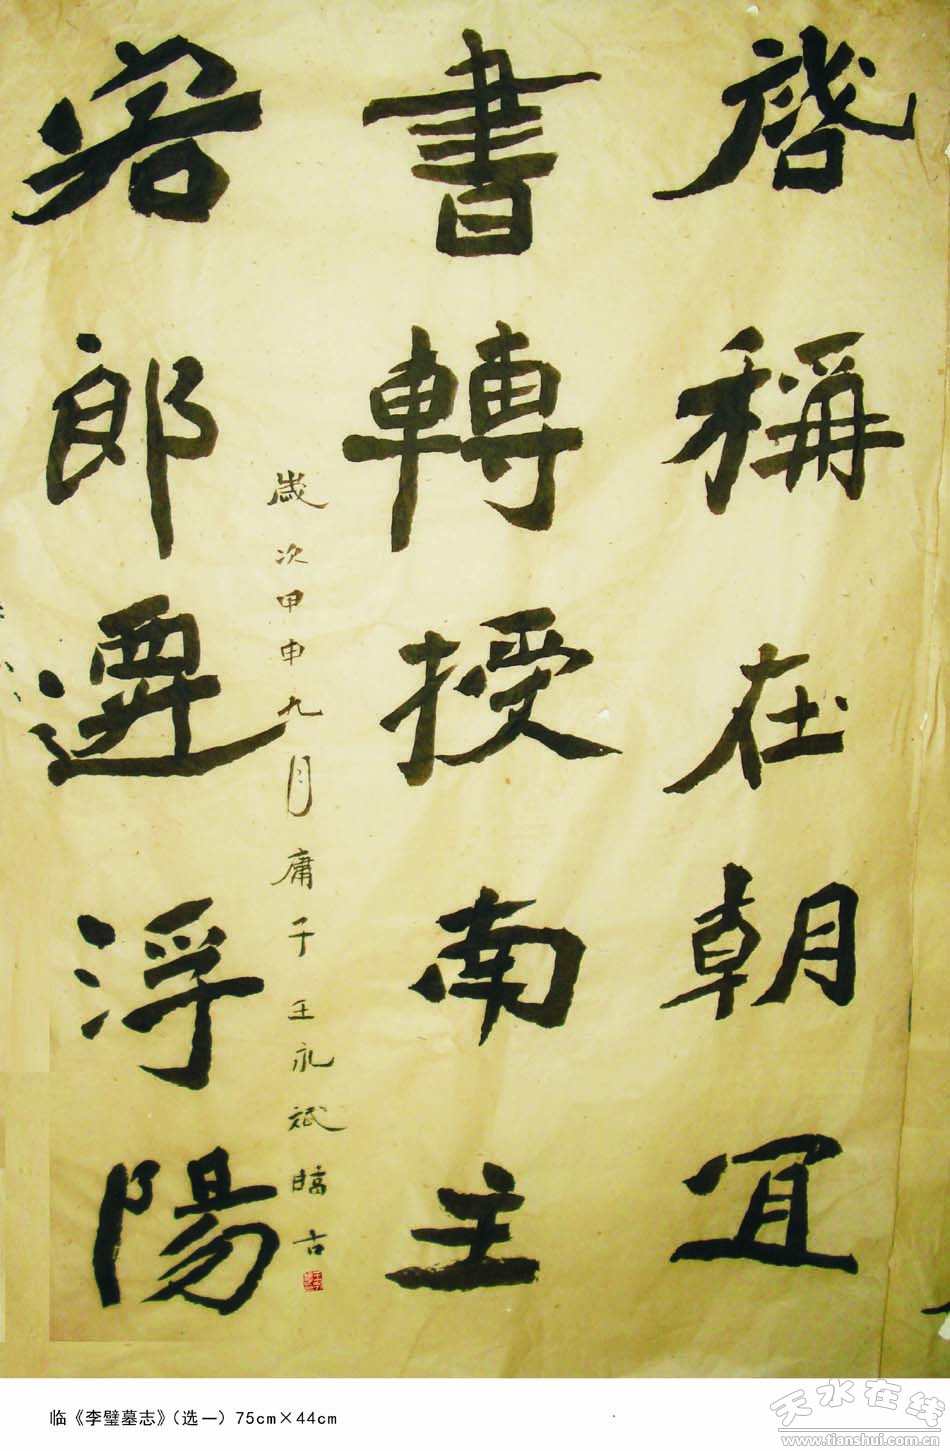 啓稱在朝冝
書轉授南主
客郎遷浮陽
歲次甲申九月庸子王永斌臨古
临《李璧墓志》(选一) 75cm×44cm
天水在线
www.tianshui.com.cn